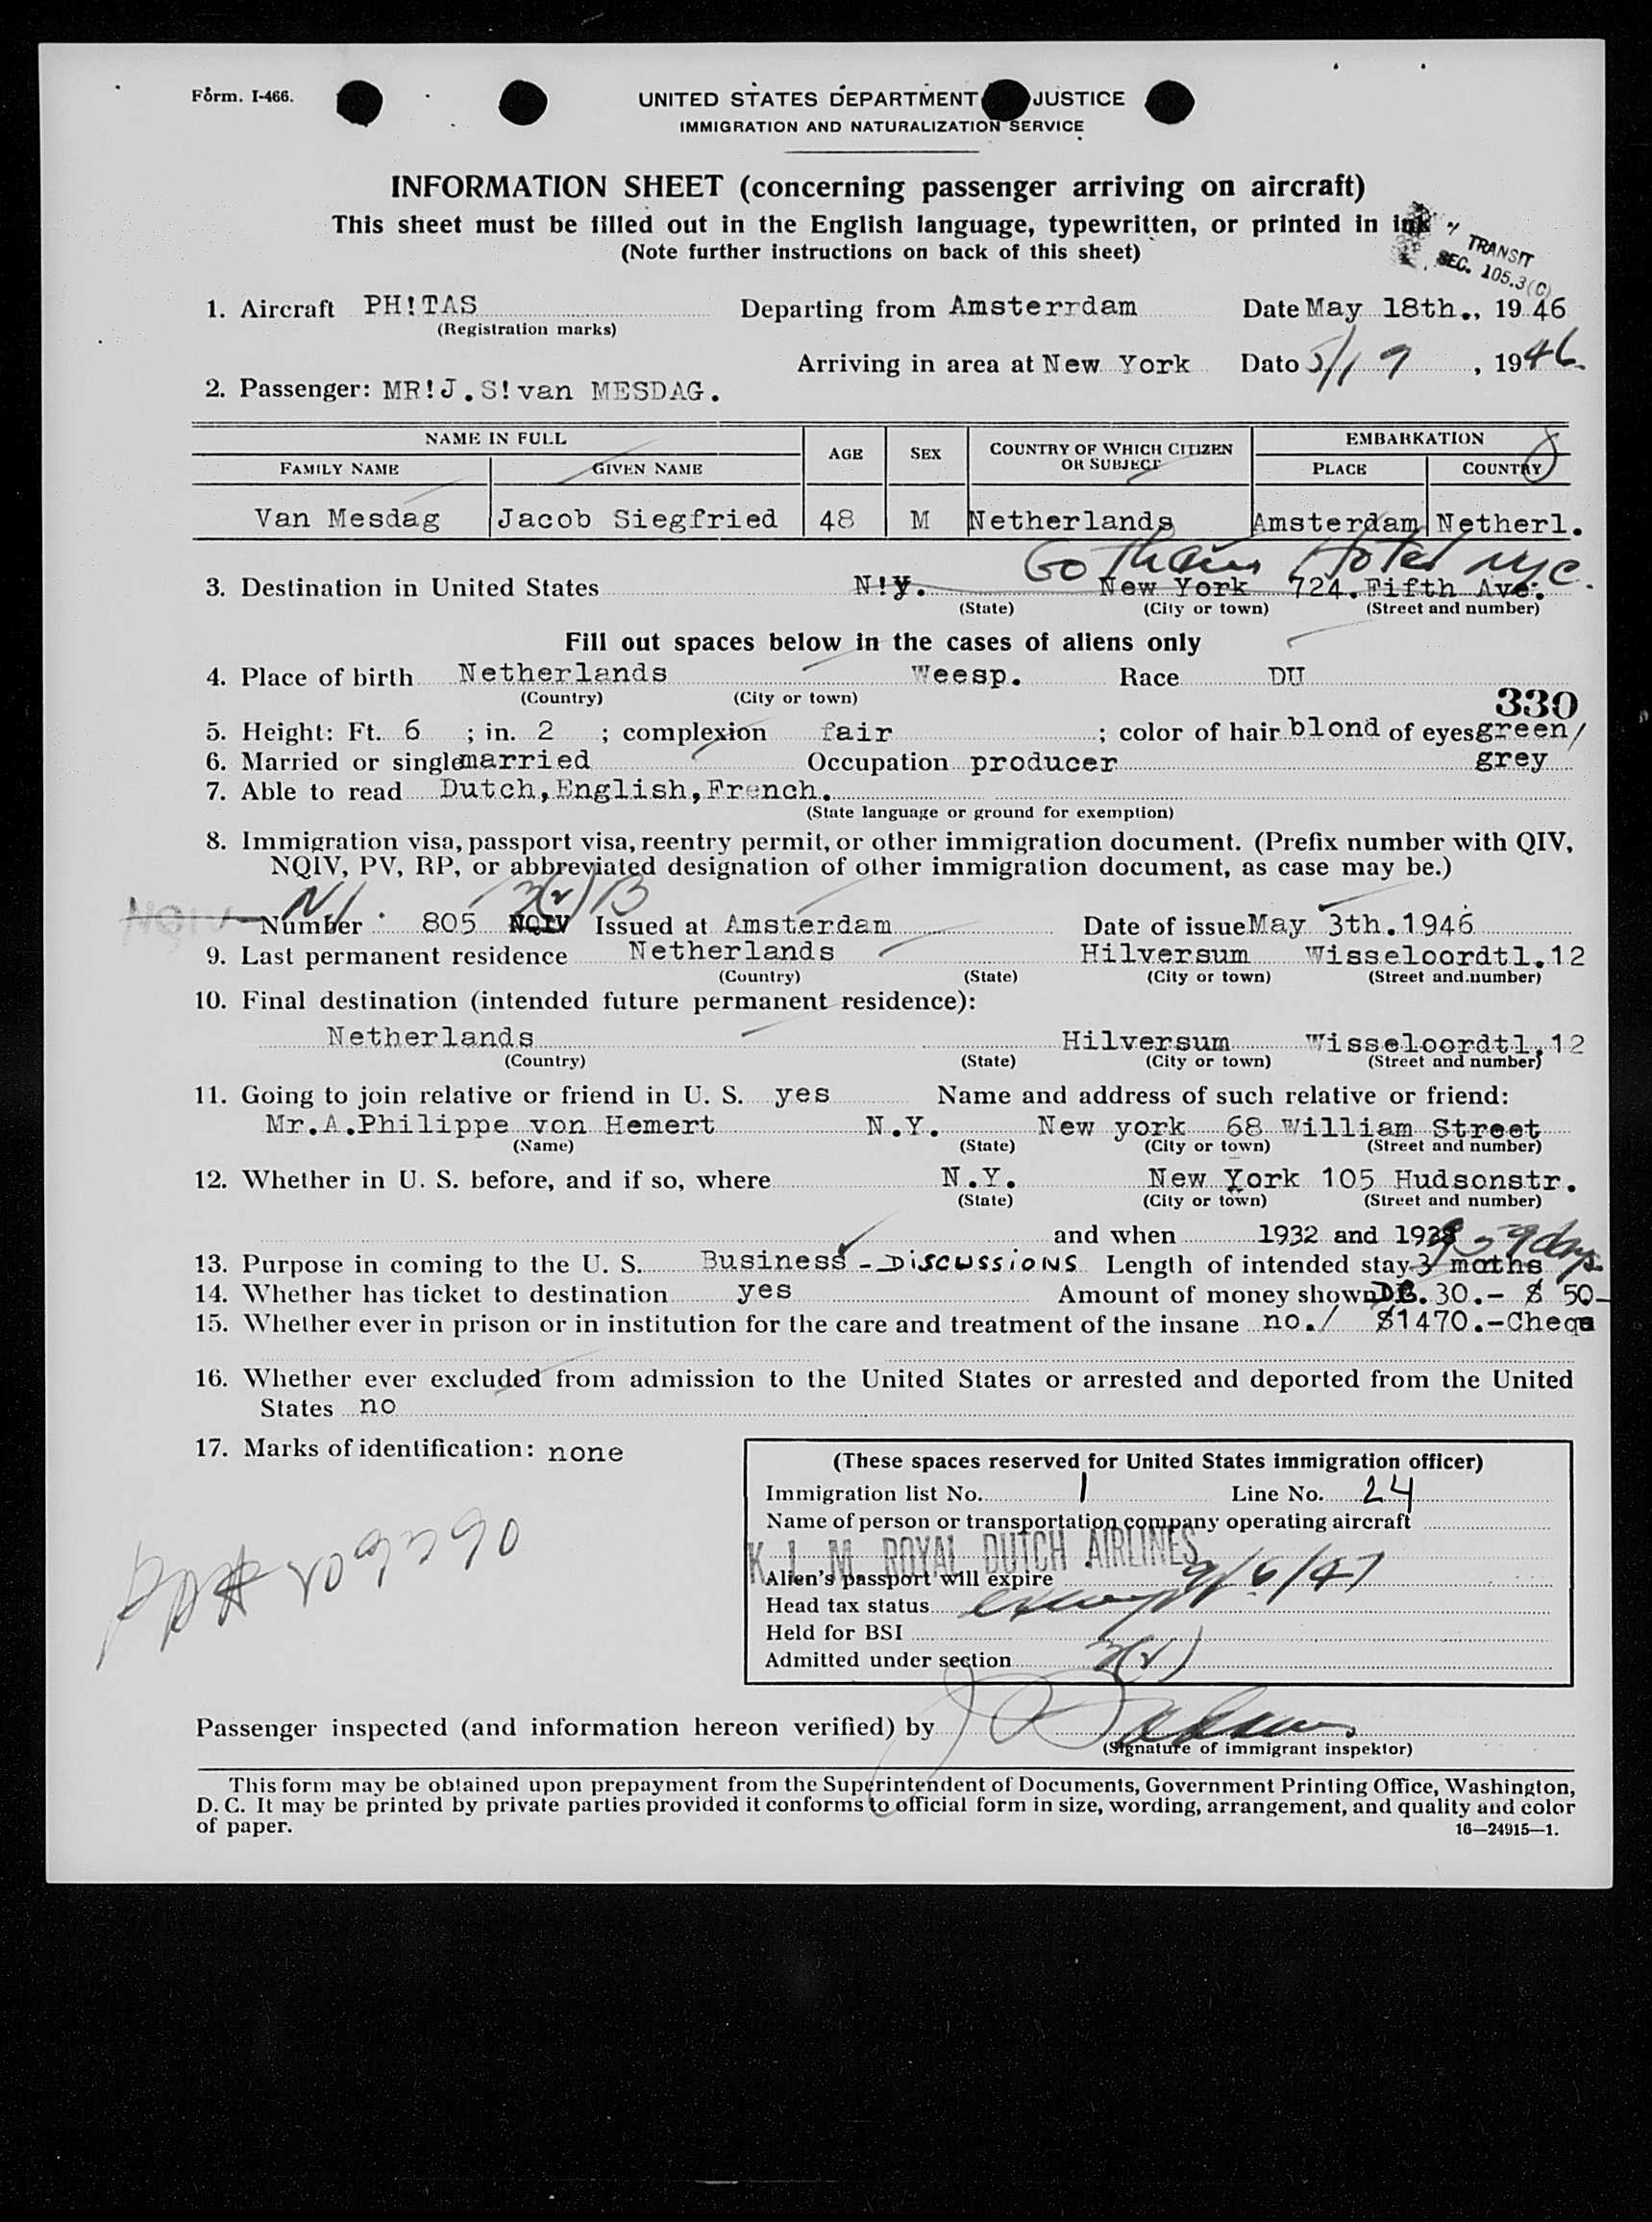 Form. I-466.
UNITED STATES DEPARTMENT JUSTICE
IMMIGRATION AND NATURALIZATION SERVICE
INFORMATION SHEET (concerning passenger arriving on aircraft)
This sheet must be filled out in the English language, typewritten, or printed in ink
(Note further instructions on back of this sheet)
TRANSIT
SEC. 105.3(C)
1. Aircraft PH!TAS Departing from Amsterrdam Date May 18th., 1946
(Registration marks)
Arriving in area at New York Dato 5/19, 1946.
2. Passenger: MR!J.S!van MESDAG.
NAME IN FULL AGE SEX COUNTRY OF WHICH CITIZEN OR SUBJECT EMBARKATION
FAMILY NAME GIVEN NAME PLACE COUNTRY
8
Van Mesdag Jacob Siegfried 48 M Netherlands Amsterdam Netherl.
Gotham Hotel NYC.
3. Destination in United States N!Y. New York 724.Fifth Ave.
(State) (City or town) (Street and number)
Fill out spaces below in the cases of aliens only
4. Place of birth Netherlands Weesp. Race DU
(Country) (City or town)
330
5. Height: Ft. 6 ; in. 2 ; complexion fair ; color of hair blond of eyes green/
6. Married or single married Occupation producer grey
7. Able to read Dutch,English,French.
(State language or ground for exemption)
8. Immigration visa, passport visa, reentry permit, or other immigration document. (Prefix number with QIV,
NQIV, PV, RP, or abbreviated designation of other immigration document, as case may be.)
NI 3(2) B
NQIV Number 805 NQIV Issued at Amsterdam Date of issue May 3th.1946
9. Last permanent residence Netherlands Hilversum Wisseloordtl.12
(Country) (State) (City or town) (Street and number)
10. Final destination (intended future permanent residence):
Netherlands Hilversum Wisseloordtl.12
(Country) (State) (City or town) (Street and number)
11. Going to join relative or friend in U. S. yes Name and address of such relative or friend:
Mr.A.Philippe von Hemert N.Y. New york 68 William Street
(Name) (State) (City or town) (Street and number)
12. Whether in U. S. before, and if so, where N.Y. New York 105 Hudsonstr.
(State) (City or town) (Street and number)
and when 1932 and 1938
13. Purpose in coming to the U. S. Business - DISCUSSIONS Length of intended stay 3 moths
14. Whether has ticket to destination yes Amount of money shown 30.- $ 50-
15. Whether ever in prison or in institution for the care and treatment of the insane no./ $1470.-Cheqe
16. Whether ever excluded from admission to the United States or arrested and deported from the United
States no
17. Marks of identification: none
(These spaces reserved for United States immigration officer)
Immigration list No. 1 Line No. 24
Name of person or transportation company operating aircraft
K L M ROYAL DUTCH AIRLINES
Alien's passport will expire 9/6/47
Head tax status
Held for BSI
Admitted under section 3(2)
Passenger inspected (and information hereon verified) by
(Signature of immigrant inspektor)
This form may be obtained upon prepayment from the Superintendent of Documents, Government Printing Office, Washington,
D. C. It may be printed by private parties provided it conforms to official form in size, wording, arrangement, and quality and color
of paper.
16—24915—1.